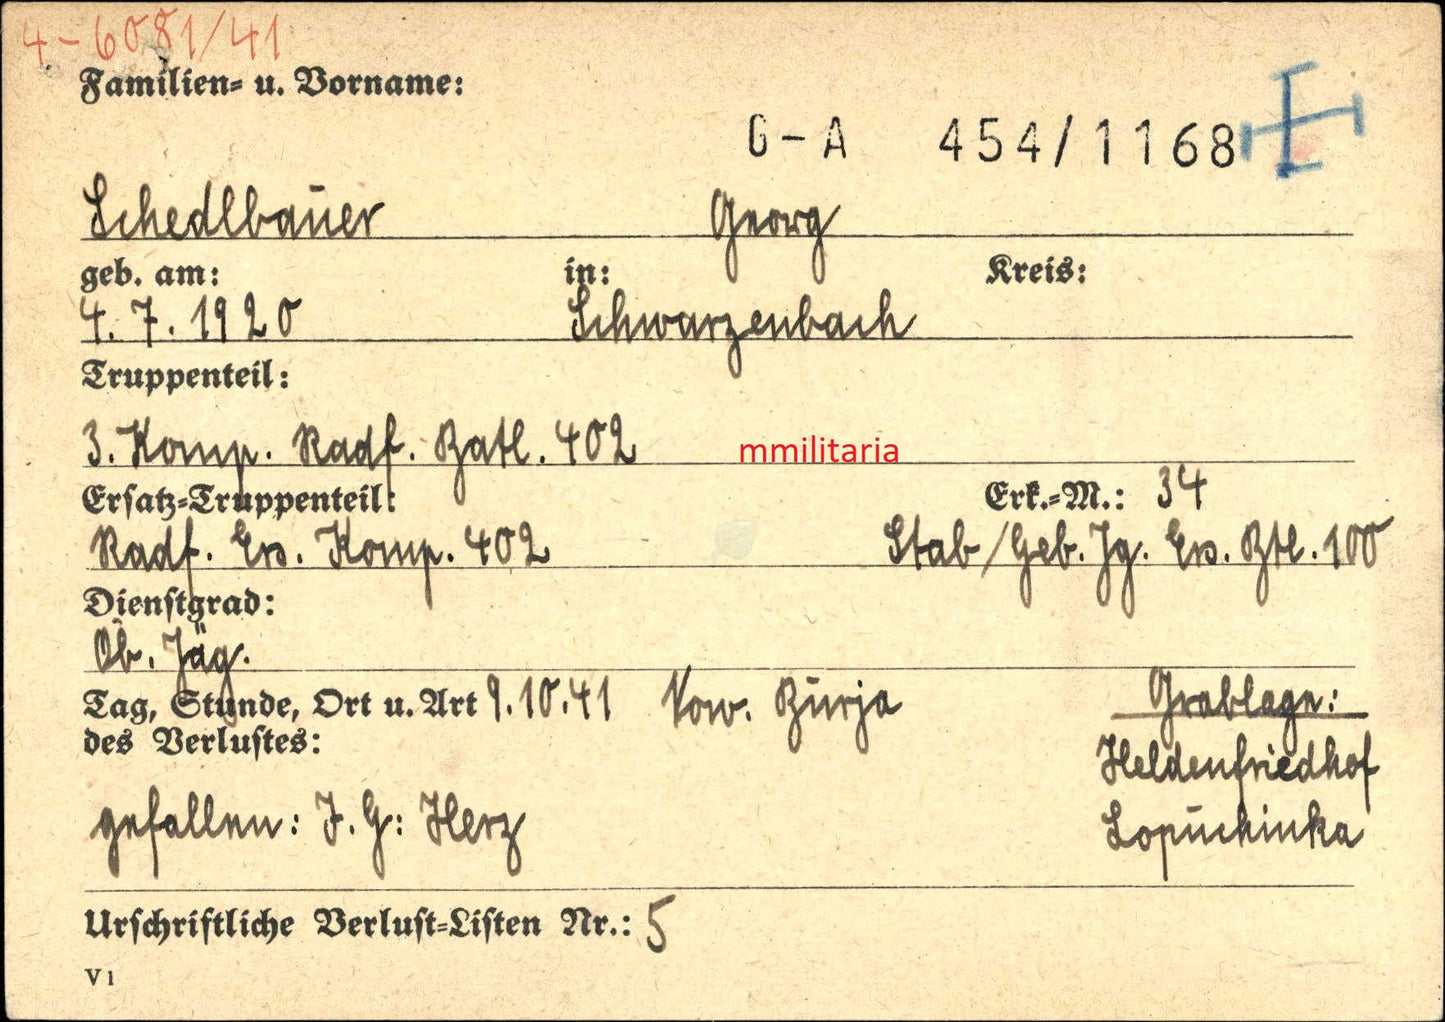 4-6081/41
Familien- u. Vorname:
G-A 454/1168
Schedlbauer Georg
geb. am: in: Kreis:
4. 7. 1920 Schwarzenbach
Truppenteil:
3. Komp. Radf. Batl. 402
mmilitaria
Ersatz-Truppenteil: Erk.-M.: 34
Radf. Ers. Komp. 402 Stab/Geb. Jg. Ers. Btl. 100
Dienstgrad:
Ob. Jäg.
Tag, Stunde, Ort u. Art 9.10.41 Bürja Grablage:
des Verlustes: Heldenfriedhof
gefallen: I. G: Herz Lopuchinka
Urschriftliche Verlust-Listen Nr.: 5
V1